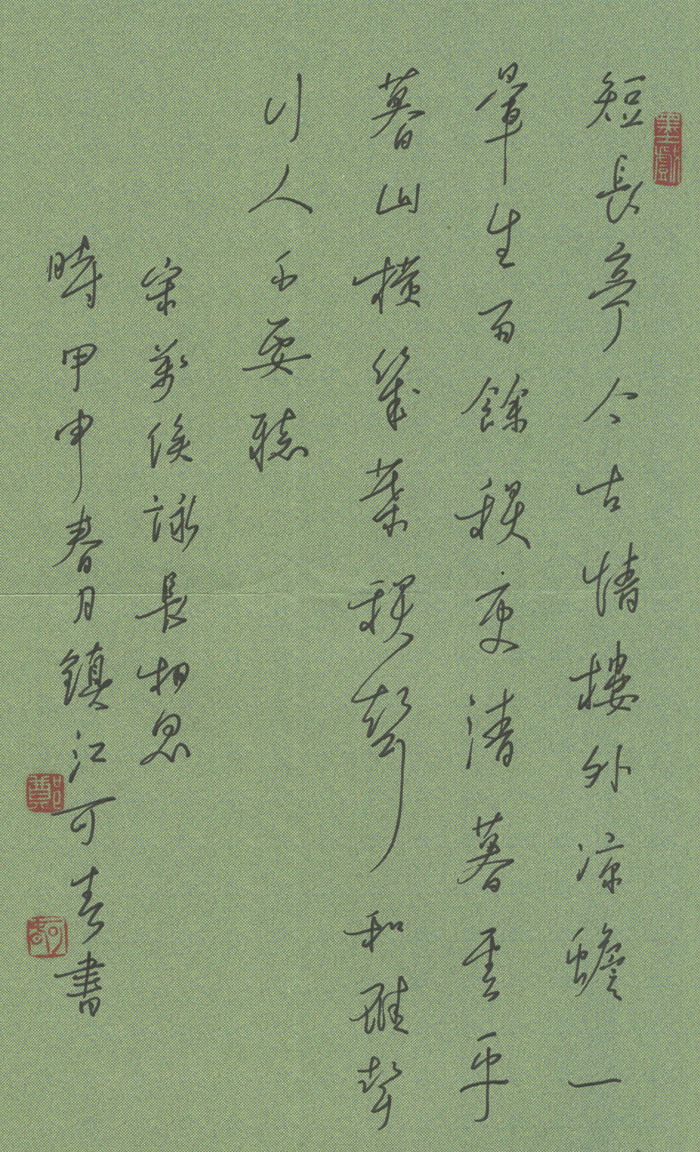 墨戲
短長亭今古情樓外凉蟾一
暈生雨餘秋更清暮雲平
暮山橫幾葉秋聲和雁聲
行人不要聽
宋萬俟詠長相思
時甲申春月鎮江可書
鄭印